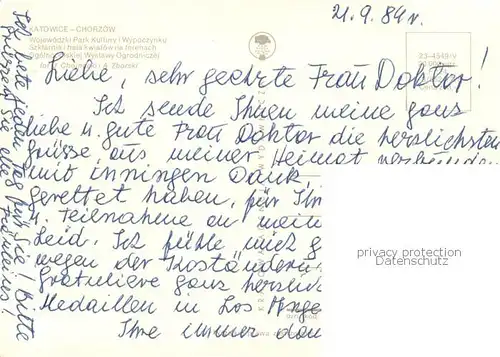 KATOWICE - CHORZÓW
Wojewódzki Park Kultury i Wypoczynku
Szklarnia i hala kwiatów na terenach
Ogólnopolskiej Wystawy Ogrodniczej
21.9.84 r.
Liebe, sehr geehrte Frau Doktor!
Ich sende Ihnen meine ganz
liebe u. gute Frau Doktor die herzlichsten
Grüsse aus meiner Heimat
mit inningen Dank,
gerettet haben, für Ihr
u. Teilnahme an mein
Leid. Ich fühle mich g
wegen der Koständeru
Gratuliere ganz herzlic
Medaillen in Los Ange
Ihre immer dan
Ich bete jeden Tag für Sie! Bitte
Grüssen Sie alle
privacy protection
Datenschutz